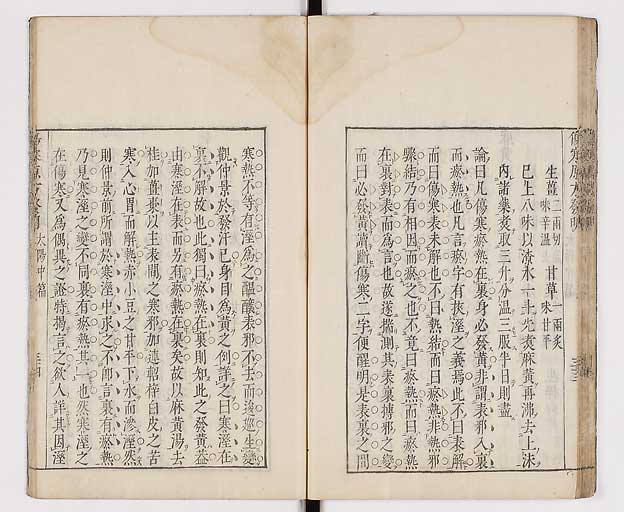 生薑二兩切 味辛温 甘草一兩炙 味甘平
已上八味以潦水一斗先煮麻黄再沸去上沫
内諸藥煮取三升分温三服半日則盡
論曰凡傷寒瘀熱在裏身必發黄非謂表邪入裏
而瘀熱也凡言瘀字有挾溼之義焉此不曰表解
而曰傷寒表未解也不曰熱結而曰瘀熱非熱邪
聚結乃有相因而瘀之也不竟曰瘀熱而曰瘀熱
在裏對表而爲言也故遂揣測其表裏摶邪之變
而曰必發黄讀斷傷寒二字便醒明是表裏之間
寒熱不等有溼爲之醖釀表邪不去而逡巡生變
觀仲景於發汗已身目爲黄之例詳之曰寒溼在
裏不解故也此獨曰瘀熱在裏則知此之發黄蓋
由寒溼在表而另有瘀熱在裏矣故以麻黄湯去
桂加薑棗以主表間之寒邪加連軺梓白皮之苦
寒入心胃而解熱赤小豆之甘平下水而滲溼然
則仲景前所謂於寒溼中求之不卽言裏有瘀熱
乃見寒溼之變不同裏有瘀熱其一也然寒溼之
在傷寒又爲偶異之證特揭言之欲人詳其因溼
太陽中篇